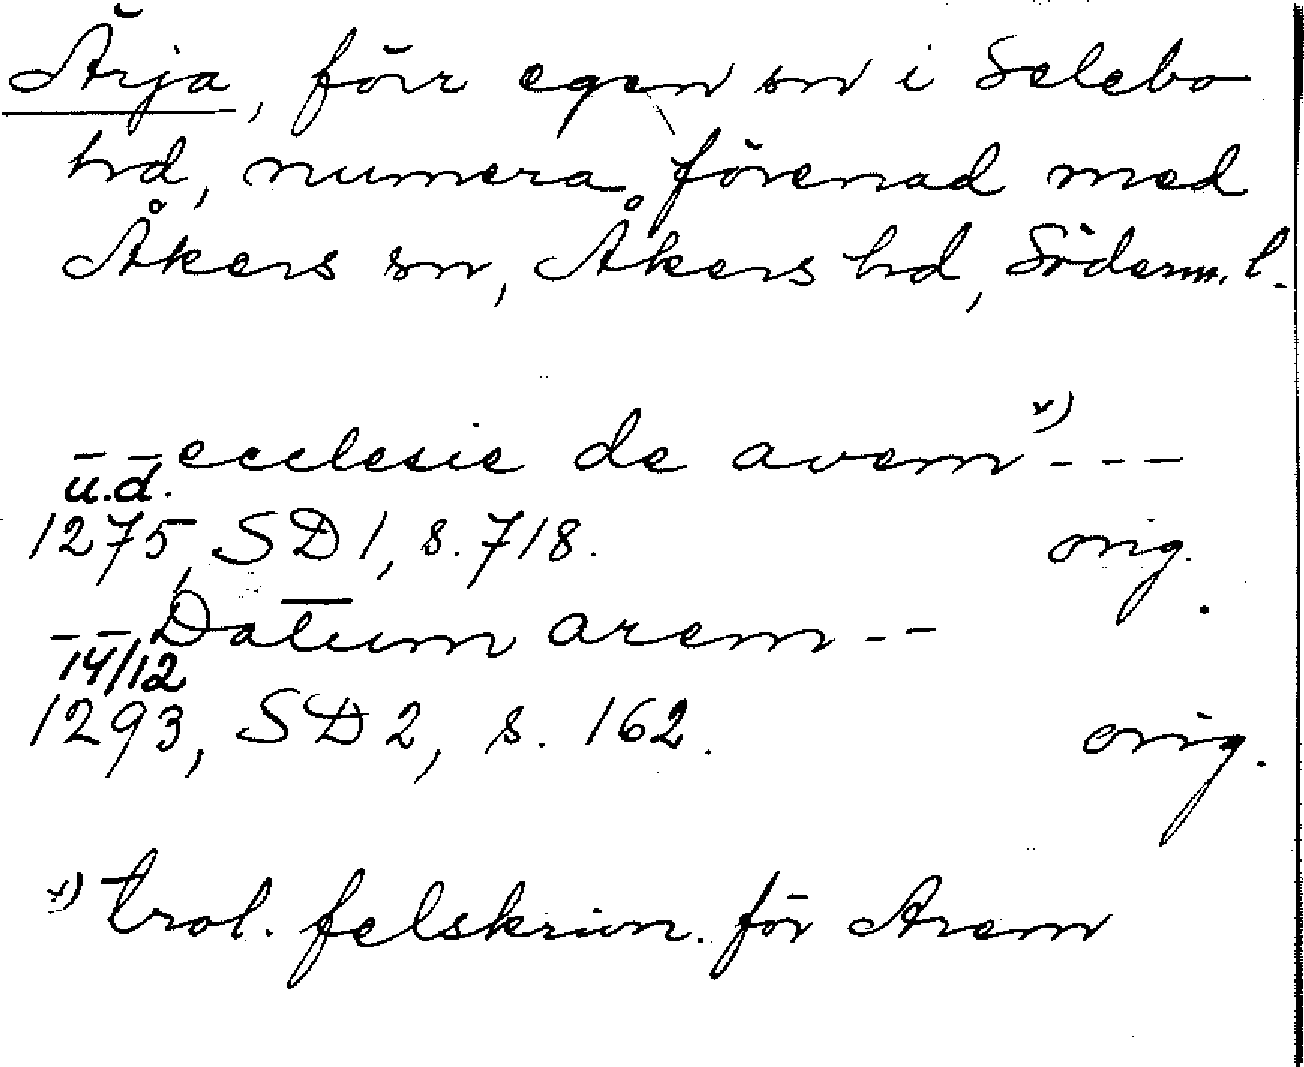 Ärja, förr egen sn i Selebo
hd, numera förenad med
Åkers sn, Åkers hd, Söderm. l.
– – ecclesie de avem x) – – –
u.d.
1275, SD 1, s. 718. orig.
– – Datum arem – –
14/12
1293, SD 2, s. 162. orig.
x) trol. felskrivn. för Arem